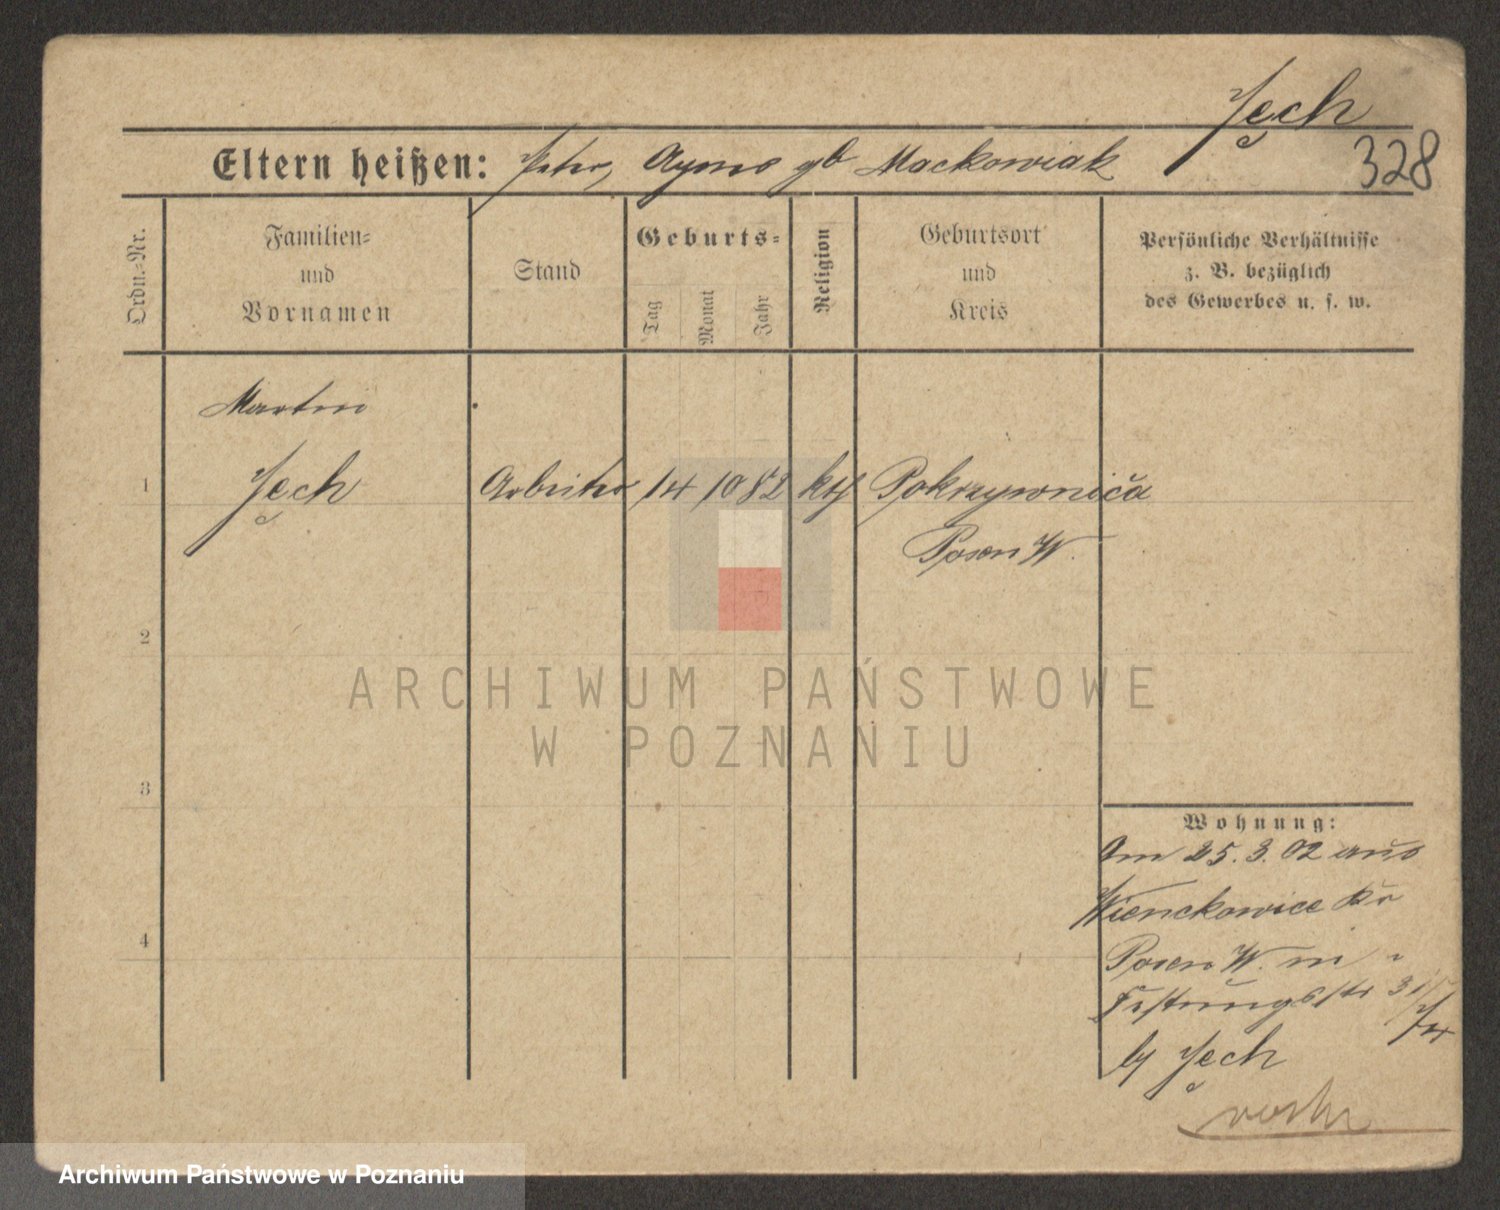 Jęch
328
Eltern heißen: Peter, Agnes gb Mackowiak
Ordn.-Nr.
Familien-
und
Vornamen
Stand
Geburts-
Tag
Monat
Jahr
Religion
Geburtsort
und
Kreis
Persönliche Verhältnisse
z. B. bezüglich
des Gewerbes u. s. w.
Martin
1 Jęch Arbeiter 14 10 82 kth Pokrzywnica
Posen W.
2
3
4
ARCHIWUM PAŃSTWOWE
W POZNANIU
Wohnung:
Am 25. 3. 02 aus
Wienckowice Kr
Posen W. in
Festungsstr 31
by Jęch
Archiwum Państwowe w Poznaniu